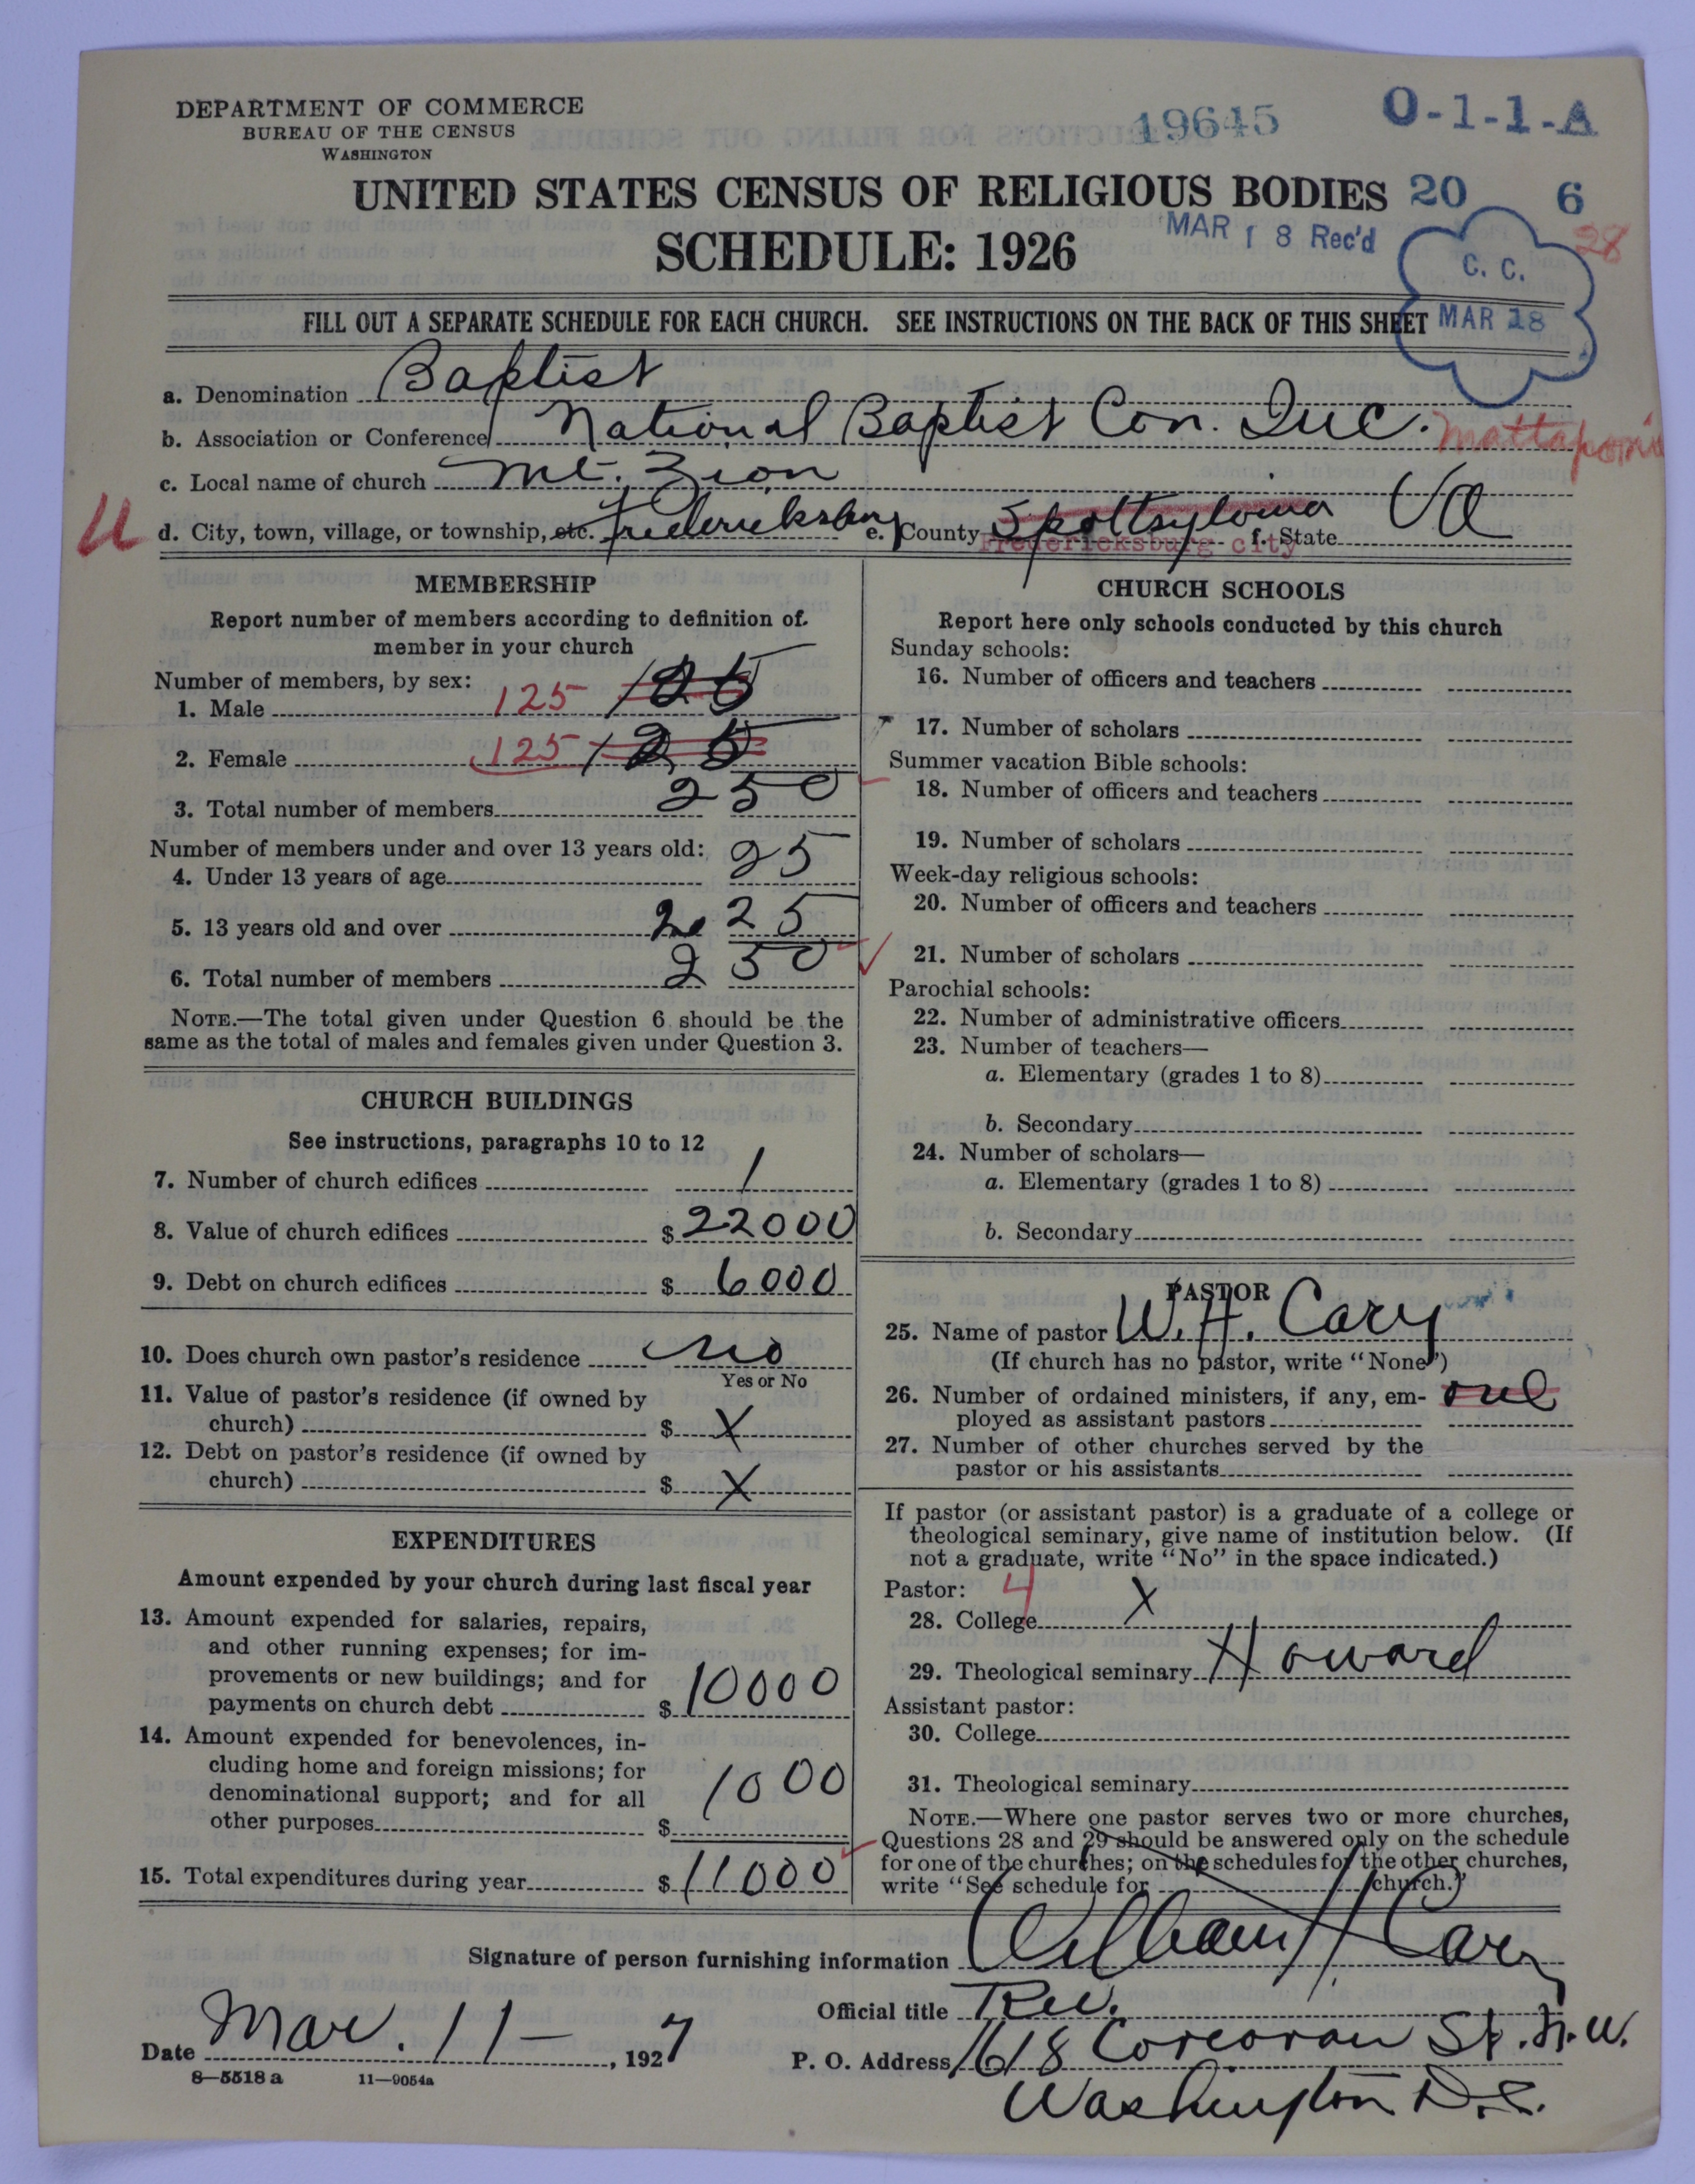 DEPARTMENT OF COMMERCE
BUREAU OF THE CENSUS
WASHINGTON
19645
O-1-1-A
UNITED STATES CENSUS OF RELIGIOUS BODIES
20 6
SCHEDULE: 1926
MAR 18 Rec'd
28
C. C.
MAR 18
FILL OUT A SEPARATE SCHEDULE FOR EACH CHURCH. SEE INSTRUCTIONS ON THE BACK OF THIS SHEET
a. Denomination Baptist
b. Association or Conference National Baptist Con. Inc. Mattaponi
c. Local name of church Mt. Zion
U
d. City, town, village, or township, etc. Fredericksburg e. County Spottsylvania f. State Va
Fredericksburg city
MEMBERSHIP
Report number of members according to definition of
member in your church
Number of members, by sex:
1. Male 125 125
2. Female 125 125
3. Total number of members 250
Number of members under and over 13 years old:
4. Under 13 years of age 25
5. 13 years old and over 225
6. Total number of members 250
NOTE.—The total given under Question 6 should be the
same as the total of males and females given under Question 3.
CHURCH BUILDINGS
See instructions, paragraphs 10 to 12
7. Number of church edifices 1
8. Value of church edifices $ 22000
9. Debt on church edifices $ 6000
10. Does church own pastor's residence no
Yes or No
11. Value of pastor's residence (if owned by
church) $ X
12. Debt on pastor's residence (if owned by
church) $ X
EXPENDITURES
Amount expended by your church during last fiscal year
13. Amount expended for salaries, repairs,
and other running expenses; for im-
provements or new buildings; and for
payments on church debt $ 10000
14. Amount expended for benevolences, in-
cluding home and foreign missions; for
denominational support; and for all
other purposes $ 1000
15. Total expenditures during year $ 11000
CHURCH SCHOOLS
Report here only schools conducted by this church
Sunday schools:
16. Number of officers and teachers
17. Number of scholars
Summer vacation Bible schools:
18. Number of officers and teachers
19. Number of scholars
Week-day religious schools:
20. Number of officers and teachers
21. Number of scholars
Parochial schools:
22. Number of administrative officers
23. Number of teachers—
a. Elementary (grades 1 to 8)
b. Secondary
24. Number of scholars—
a. Elementary (grades 1 to 8)
b. Secondary
PASTOR
25. Name of pastor W. H. Cary
(If church has no pastor, write "None")
26. Number of ordained ministers, if any, em- one
ployed as assistant pastors
27. Number of other churches served by the
pastor or his assistants
If pastor (or assistant pastor) is a graduate of a college or
theological seminary, give name of institution below. (If
not a graduate, write "No" in the space indicated.)
Pastor: 4
28. College X
29. Theological seminary Howard
Assistant pastor:
30. College
31. Theological seminary
NOTE.—Where one pastor serves two or more churches,
Questions 28 and 29 should be answered only on the schedule
for one of the churches; on the schedules for the other churches,
write "See schedule for church."
Signature of person furnishing information William H Cary
Official title Rev.
Date Mar. 11—, 1927
P. O. Address 1618 Corcoran St. N.W.
Washington D.C.
8—5518 a 11—9054a